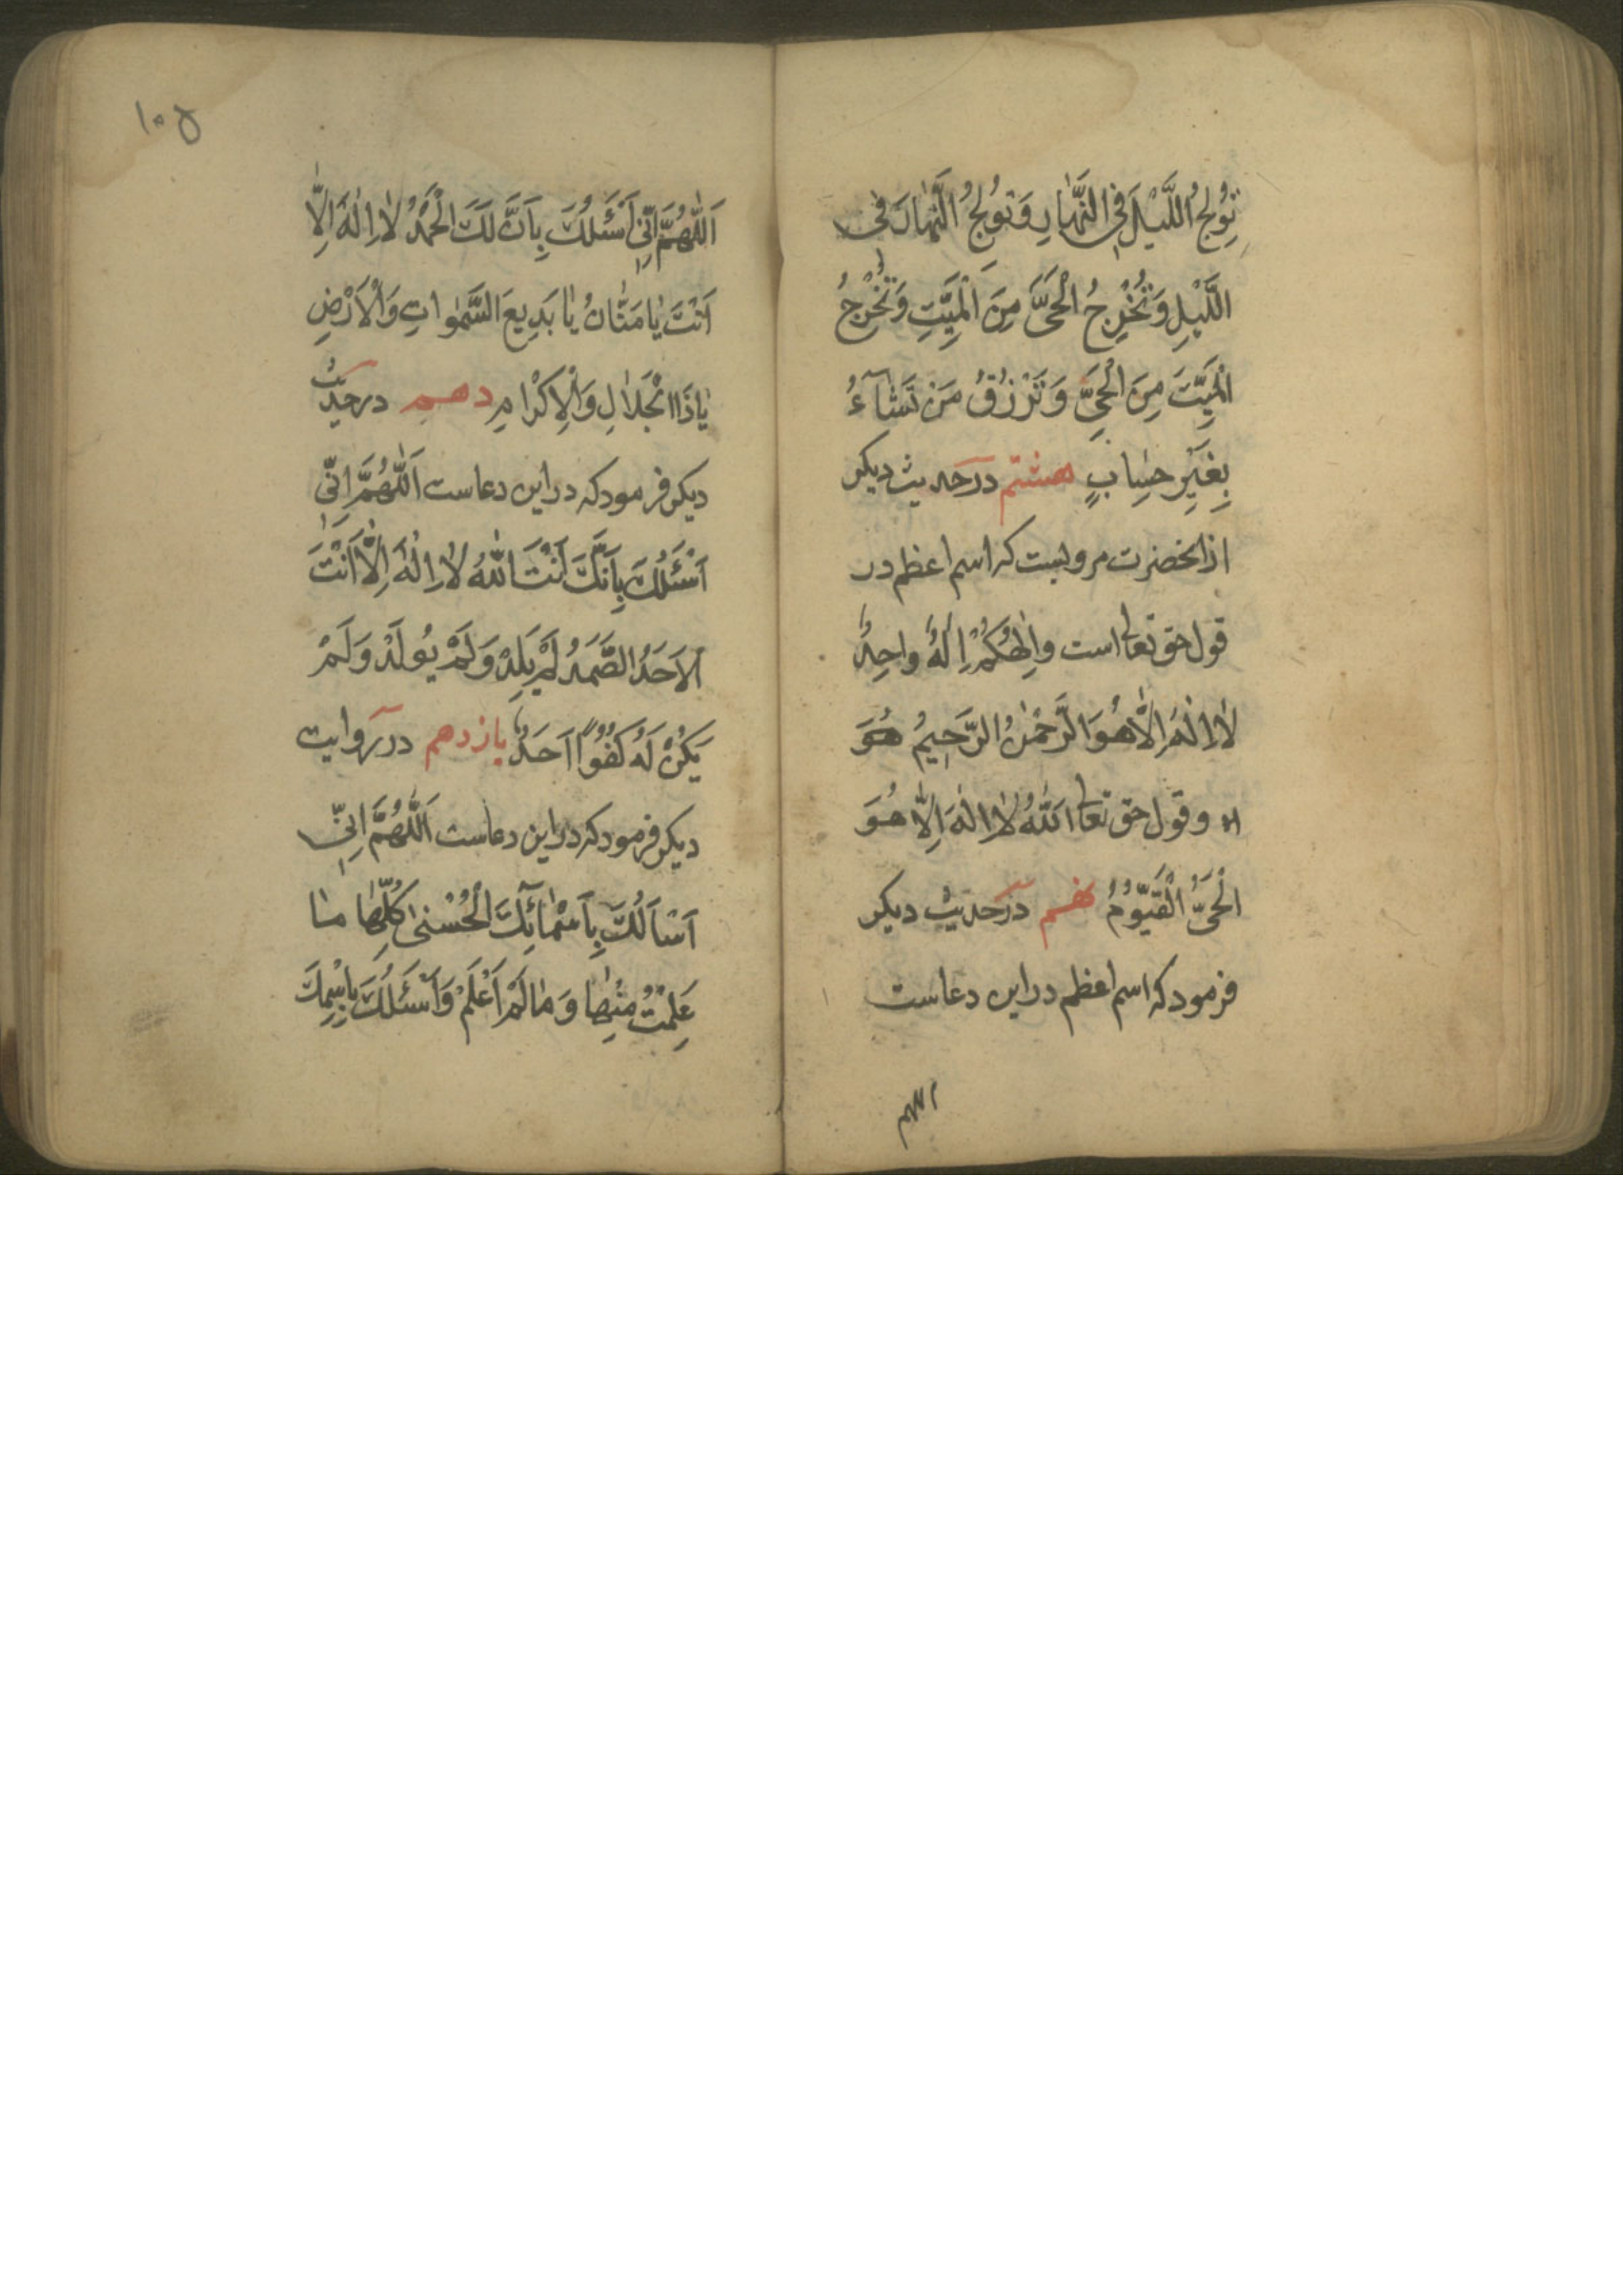 تُولِجُ اللَّيْلَ فِي النَّهٰارِ وَتُولِجُ النَّهٰارَ فِي
اللَّيْلِ وَتُخْرِجُ الْحَيَّ مِنَ الْمَيِّتِ وَتُخْرِجُ
الْمَيِّتَ مِنَ الْحَيِّ وَتَرْزُقُ مَنْ تَشٰآءُ
بِغَيْرِ حِسٰابٍ هشتم در حدیث دیکر
از انحضرت مرویست که اسم اعظم در
قول حق تعالی است وَاِلٰهُكُمْ اِلٰهٌ واحِدٌ
لٰا اِلٰهَ اِلَّا هُوَ الرَّحْمٰنُ الرَّحِيمُ هُوَ
وقول حق تعالی اَللّٰهُ لٰا اِلٰهَ اِلّٰا هُوَ
الْحَيُّ الْقَيُّومُ نهم در حدیث دیکر
فرمود که اسم اعظم در این دعاست
اللهم
١٠۵
اَللّٰهُمَّ اِنّي اَسْئَلُكَ بِاَنَّ لَكَ الْحَمْدُ لٰا اِلٰهَ اِلّٰا
اَنْتَ يٰا مَنّٰانُ يٰا بَدِيعَ السَّمٰواتِ وَالْاَرْضِ
يٰا ذَا الْجَلٰالِ وَالْاِكْرٰامِ دهم در حدیث
دیکر فرمود که در این دعاست اَللّٰهُمَّ اِنّي
اَسْئَلُكَ بِاَنَّكَ اَنْتَ اللّٰهُ لٰا اِلٰهَ اِلّٰا اَنْتَ
الْاَحَدُ الصَّمَدُ لَمْ يَلِدْ وَلَمْ يُولَدْ وَلَمْ
يَكُنْ لَهُ كُفُوًا اَحَدٌ یازدهم در روایت
دیکر فرمود که در این دعاست اَللّٰهُمَّ اِنّي
اَسْاَلُكَ بِاَسْمٰائِكَ الْحُسْنىٰ كُلِّهٰا مٰا
عَلِمْتُ مِنْهٰا وَمٰا لَمْ اَعْلَمْ وَاَسْئَلُكَ بِاِسْمِكَ